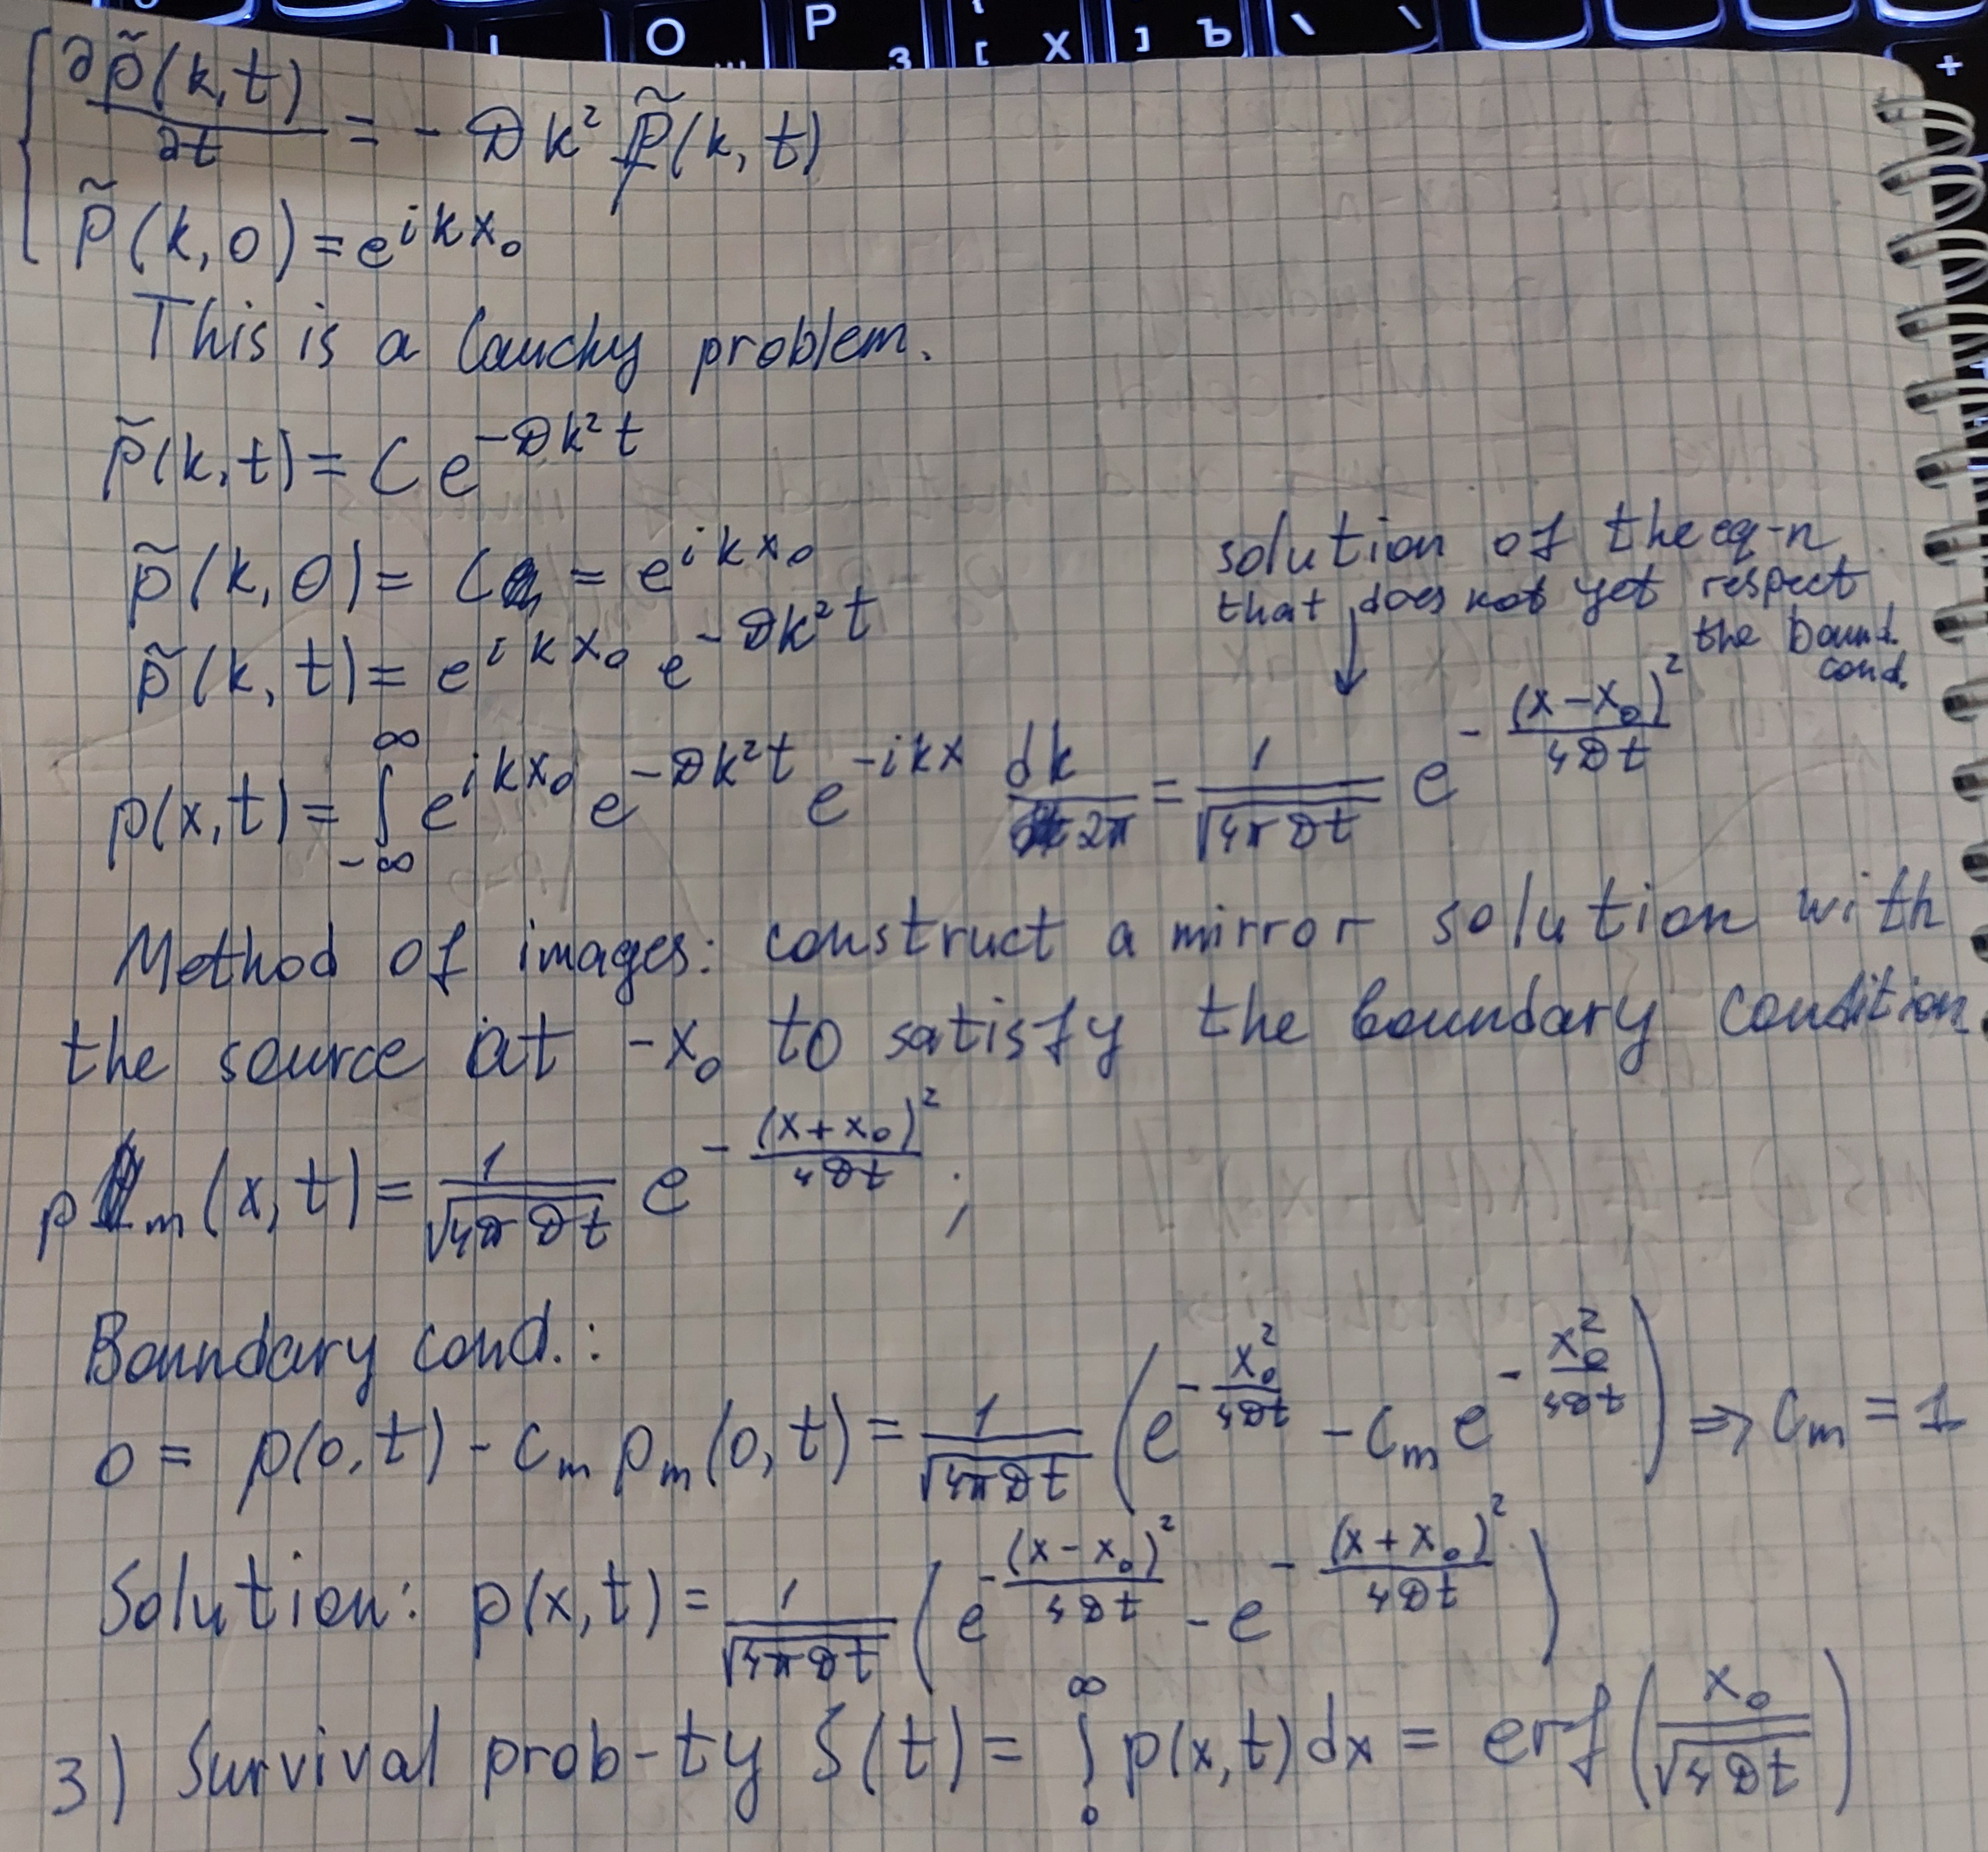 О Р З [ Х ] Ъ \ \ +
∂p̃(k,t)/∂t = - D k² p̃(k,t)
p̃(k,0) = e^{ikx₀}
This is a Cauchy problem.
p̃(k,t) = C e^{-Dk²t}
p̃(k,0) = C = e^{ikx₀}
solution of the eq-n
that does not yet respect
the bound.
cond.
p̃(k,t) = e^{ikx₀} e^{-Dk²t}
p(x,t) = ∫_{-∞}^{∞} e^{ikx₀} e^{-Dk²t} e^{-ikx} dk/2π = 1/√(4πDt) e^{-(x-x₀)²/4Dt}
Method of images: construct a mirror solution with
the source at -x₀ to satisfy the boundary condition
pₘ(x,t) = 1/√(4πDt) e^{-(x+x₀)²/4Dt} ;
Boundary cond.:
0 = p(0,t) - cₘ pₘ(0,t) = 1/√(4πDt) (e^{-x₀²/4Dt} - cₘ e^{-x₀²/4Dt}) ⇒ cₘ = 1
Solution: p(x,t) = 1/√(4πDt) (e^{-(x-x₀)²/4Dt} - e^{-(x+x₀)²/4Dt})
3) Survival prob-ty S(t) = ∫₀^∞ p(x,t)dx = erf(x₀/√(4Dt))